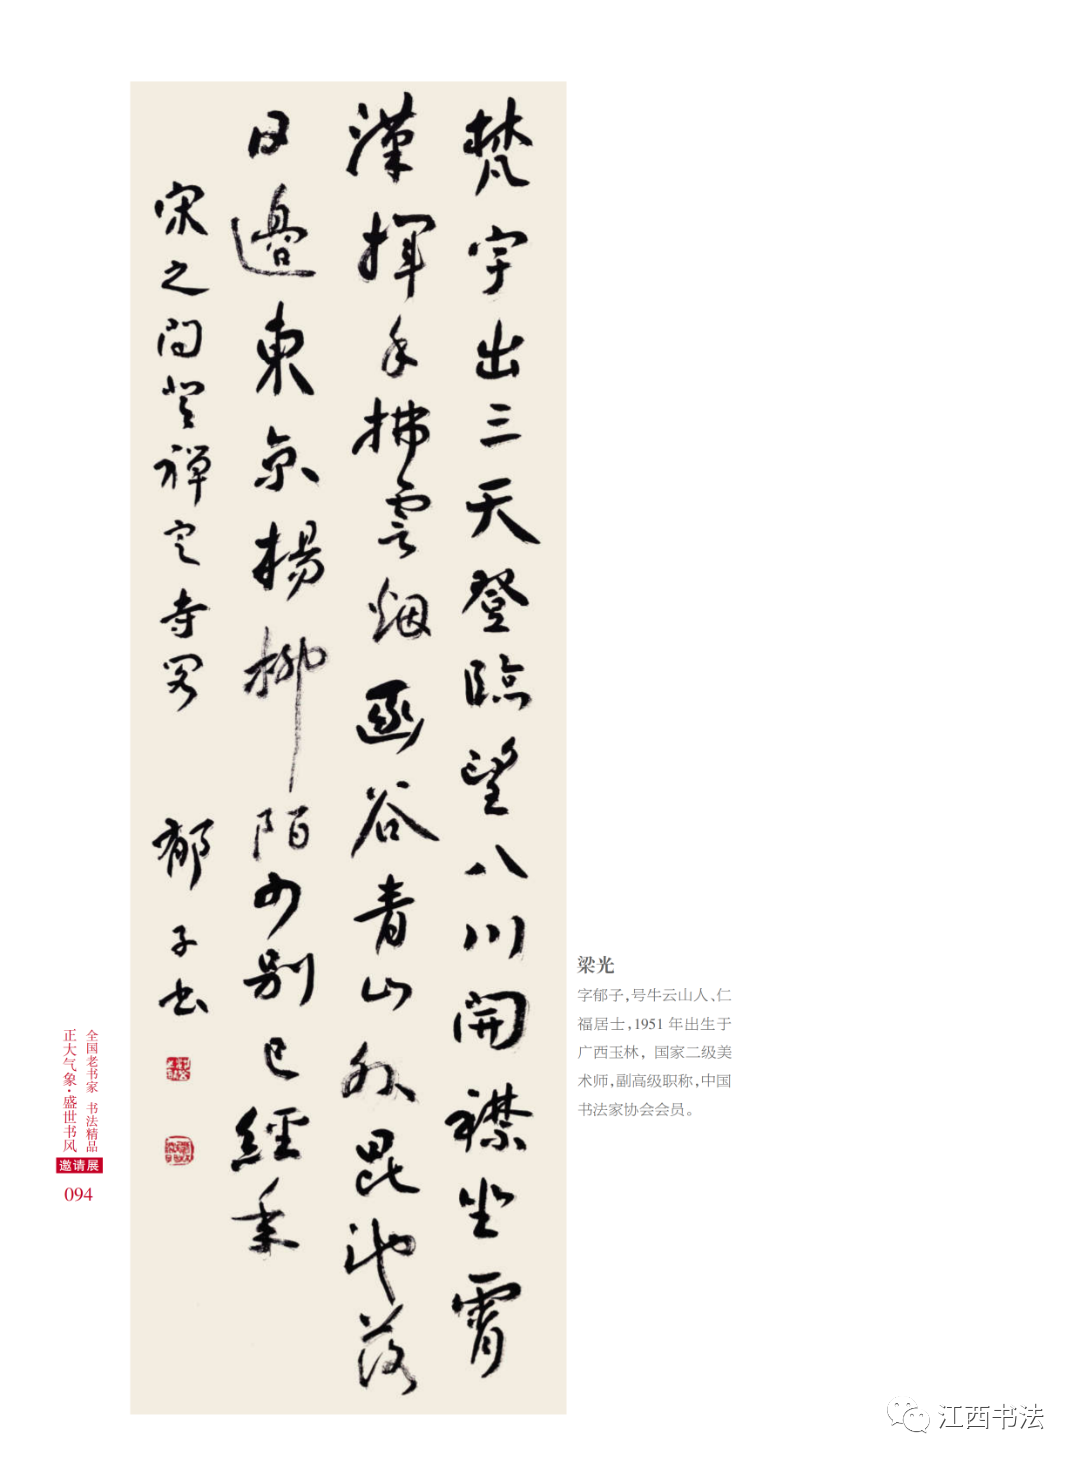 梵宇出三天登臨望八川開襟坐霄
漢揮手拂雲烟函谷青山外昆池落
日邊東京楊柳陌少別已經年
宋之问登禅定寺阁 郁子书
梁光
字郁子，号牛云山人、仁
福居士，1951 年出生于
广西玉林，国家二级美
术师，副高级职称，中国
书法家协会会员。
全国老书家 书法精品
正大气象·盛世书风
邀请展
094
江西书法